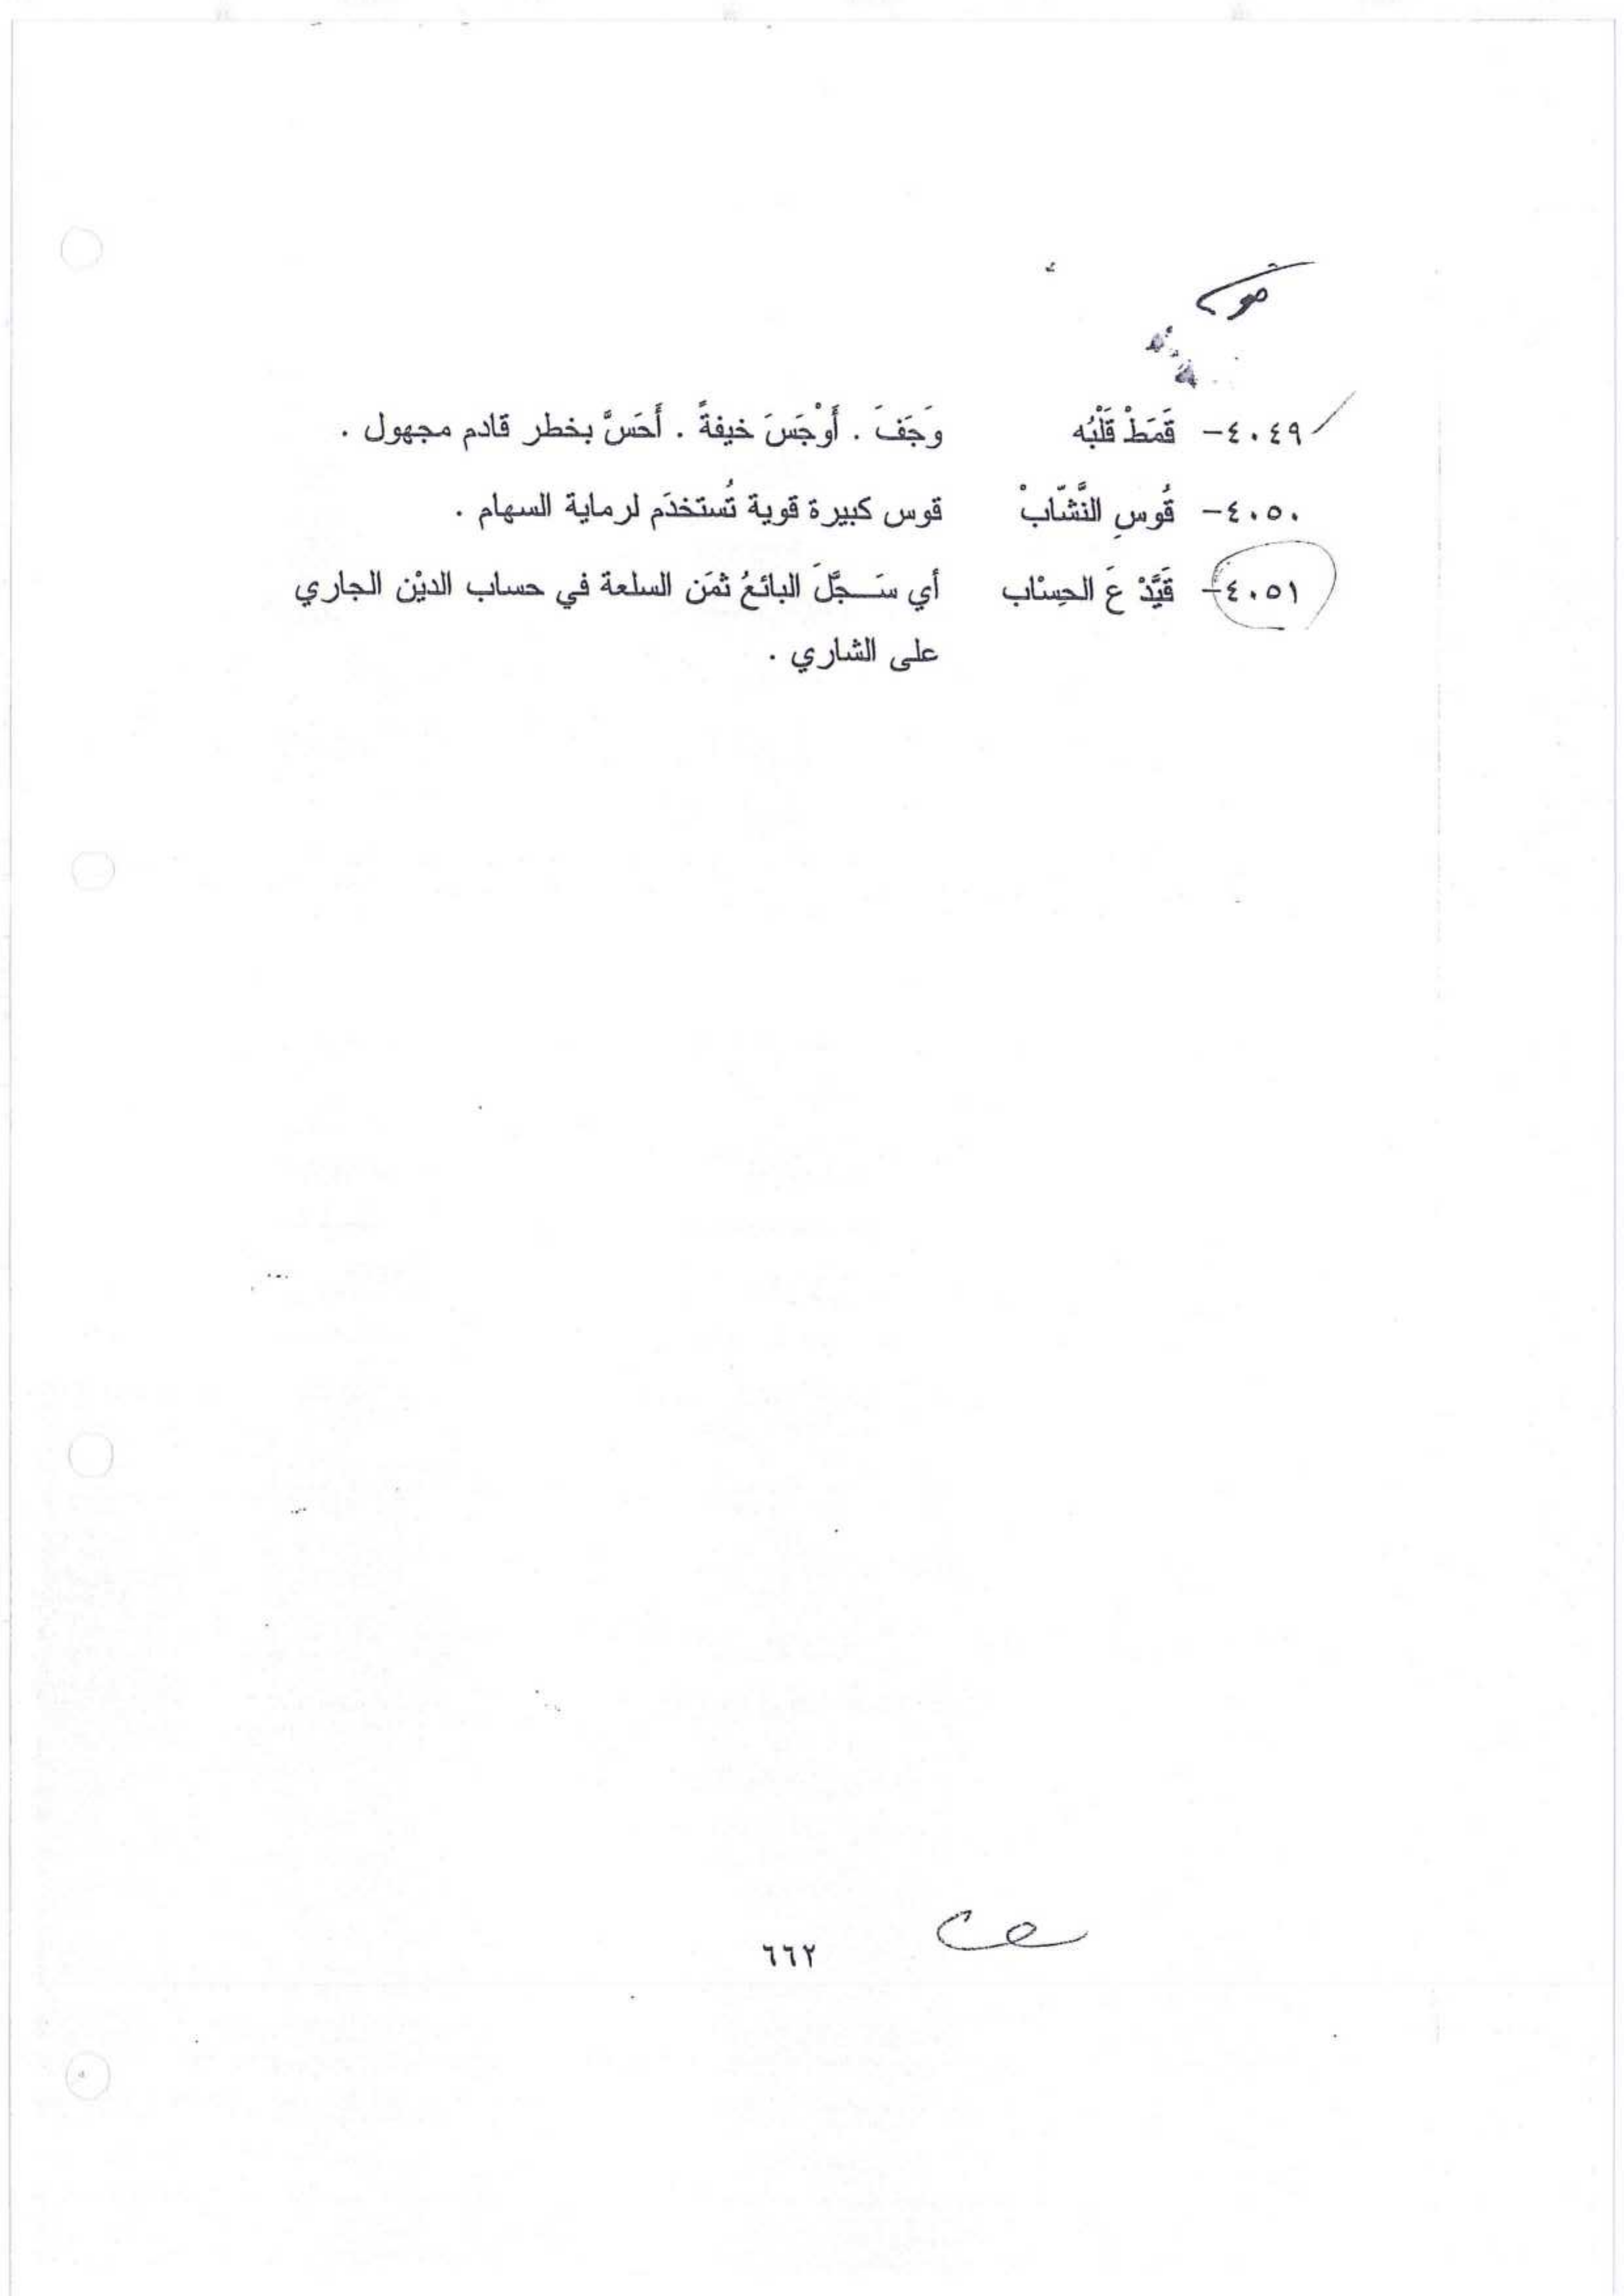 ٤٠٤٩- قَمَطْ قَلْبُه وَجَفَ . أَوْجَسَ خيفةً . أَحَسَّ بخطر قادم مجهول .
٤٠٥٠- قُوسِ النَّشّابْ قوس كبيرة قوية تُستخدَم لرماية السهام .
٤٠٥١- قَيَّدْ عَ الحِسْاب أي سَجَّلَ البائعُ ثمَن السلعة في حساب الديْن الجاري
على الشاري .
٦٦٢